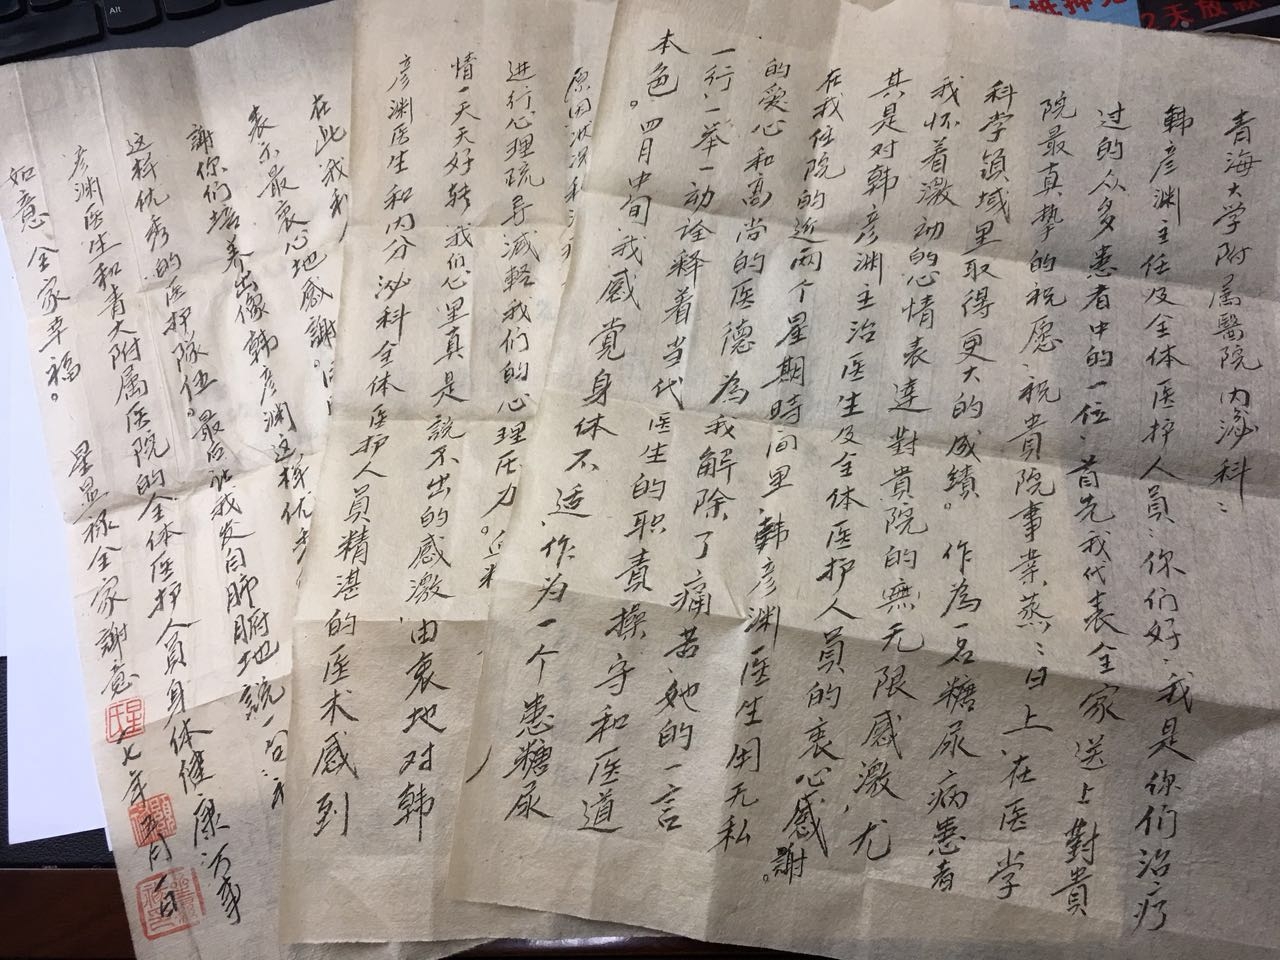 青海大学附属醫院内泌科：
韩彦渊主任及全体医护人员：你们好，我是你们治疗
过的众多患者中的一位，首先我代表全家送上對貴
院最真挚的祝愿，祝貴院事業蒸：日上，在医学
科学领域里取得更大的成绩。作為一名糖尿病患者
我怀着激动的心情表達對貴院的無无限感激，尤
其是对韩彦渊主治医生及全体医护人员的衷心感謝。
在我住院的近两个星期時间里，韩彦渊医生用无私
的爱心和高尚的医德為我解除了痛苦，她的一言
一行，一举一动诠释着当代医生的职责操守和医道
本色。四月中旬我感覚身体不适，作为一个患糖尿
原因状况和
进行心理疏导减輕我们的心理压力。近来
情一天天好转我的心里真是説不出的感激，由衷地对韩
彦渊医生和内分泌科全体医护人员精湛的医术感到
在此我和
表示最衷心地感謝。
謝你们培养出像韩彦渊这样优秀
这样优秀的医护隊伍。最后让我发自肺腑地説一句：
彦渊医生和青大附属医院的全体医护人员身体健康万事
如意全家幸福。
星显禄全家謝意
七年五月一日
Alt